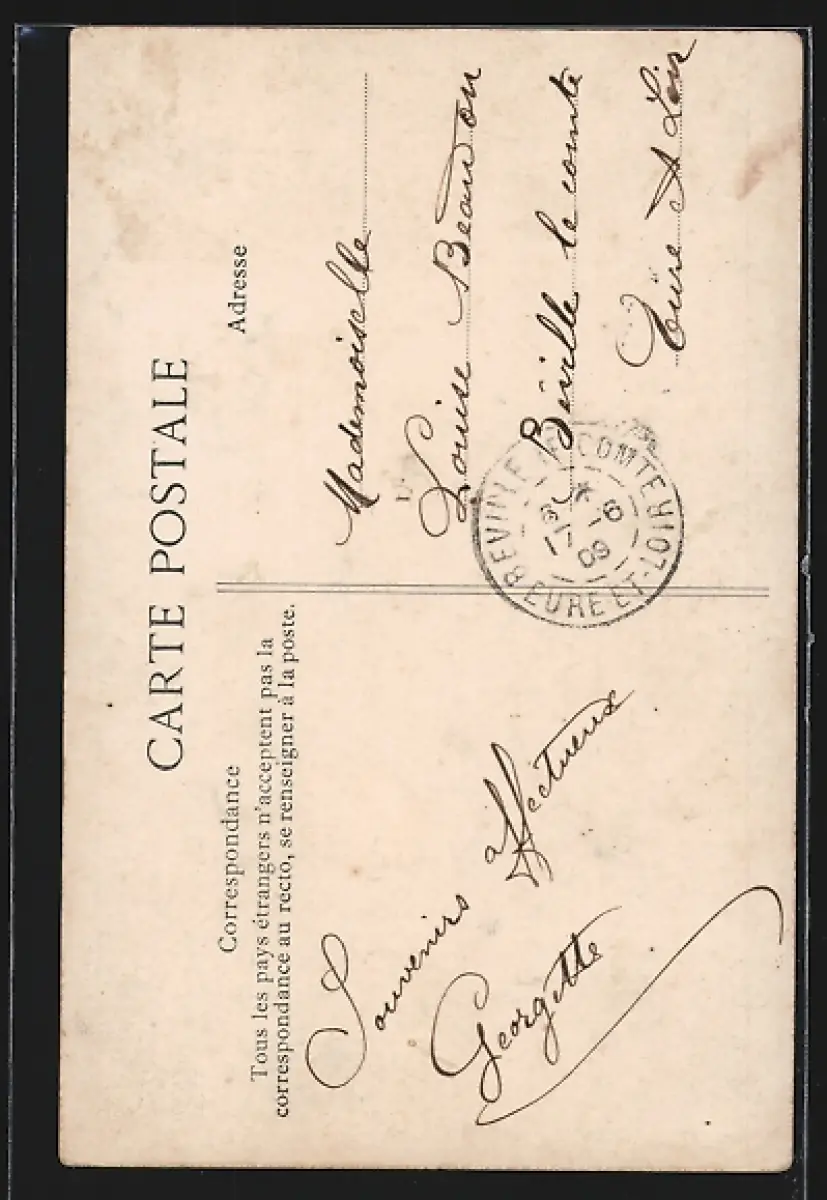 CARTE POSTALE
Correspondance
Tous les pays étrangers n'acceptent pas la
correspondance au recto, se renseigner à la poste.
Souvenirs affectueux
Georgette
Adresse
Mademoiselle
Louise
Béville le comte
Eure & Loir
BEVILLE LE COMTE
17 -6
09
EURE-ET-LOIR